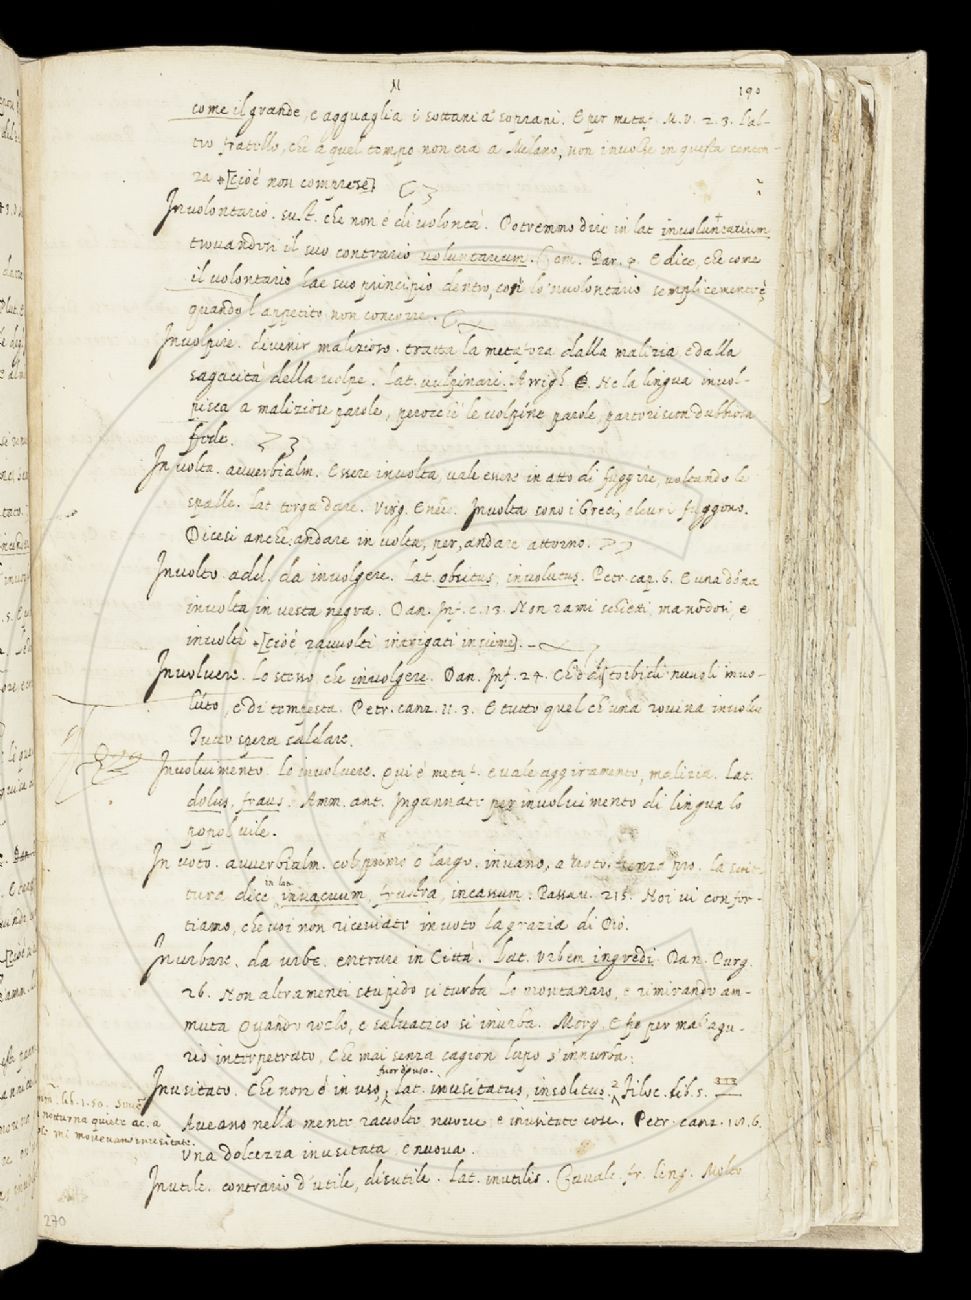 190
come il grande, e agguaglia i sottani a' soprani. E per metaf. M. V. 2. 3. L'al-
tro fratello, che a quel tempo non era a Melano, non involse in questa senten-
za +[cioè non comprese]
Involontario. sust. che non è di volontà. Potremmo dire in lat. involuntarium
trovandosi il suo contrario voluntarium. Com. Par. E dice, che come
il volontario hae suo principio dentro, così lo 'nvolontario semplicemente è
quando l'appetito non concorre.
Involpire. divenir malizioso. tratta la metafora dalla malizia e dalla
sagacità della volpe. Lat. vulpinari. Arrigh. Ne la lingua invol-
pisca a maliziose parole, perocchè le volpine parole, partoriscon dubbiosa
frode.
In volta. avverbialm. Essere in volta, vale essere in atto di fuggire, voltando le
spalle. Lat. terga dare. Virg. Eneid. In volta sono i Greci, alcuni fuggono.
Dicesi anche: andare in volta, per, andare attorno.
Involto. add. da involgere. Lat. obsitus, involutus. Petr. canz. 6. E una dōna
involta in vesta negra. Dan. Inf. c. 13. Non rami schietti, ma nodosi, e
involti +[cioè ravvolti intrigati insieme].
Involvere. Lo stesso che involgere. Dan. Inf. 24. Ch'è di torbidi nuvoli invo-
luto, e di tempesta. Petr. canz. 11. 3. E tutto quel ch'una rovina involve
Per te spera saldare.
Involvimento. Lo involvere. Qui è metaf. e vale aggiramento, malizia. Lat.
dolus, fraus. Amm. ant. Ingannate per involvimento di lingua lo
popol vile.
In voto. avverbialm. col primo o largo. invano, a voto, senza pro. la scrit-
tura dice in lat. in vacuum, frustra, incassum. Passav. 215. Noi vi confor-
tiamo, che voi non riceviate in voto la grazia di Dio.
Inurbare. da urbe. entrare in Città. Lat. urbem ingredi. Dan. Purg.
26. Non altramenti stupido si turba Lo montanaro, e rimirando am-
muta Quando rozzo, e salvatico s'inurba. Morg. E fu per mal' agu-
rio interpetrato, Che mai senza cagion lupo s'innurba.
Inusitato. Che non è in uso, fuor d'uso. Lat. inusitatus, insolitus. Filoc. lib. 5.
Aveano nella mente raccolte nuove, e inusitate cose. Petr. canz. 18. 6.
Una dolcezza inusitata, e nuova.
Inutile. contrario d'utile, disutile. Lat. inutilis. Cavalc. fr. ling. Molto
lib. 1. 50.
notturna quiete ac. a
mi movevano inusitate.
270